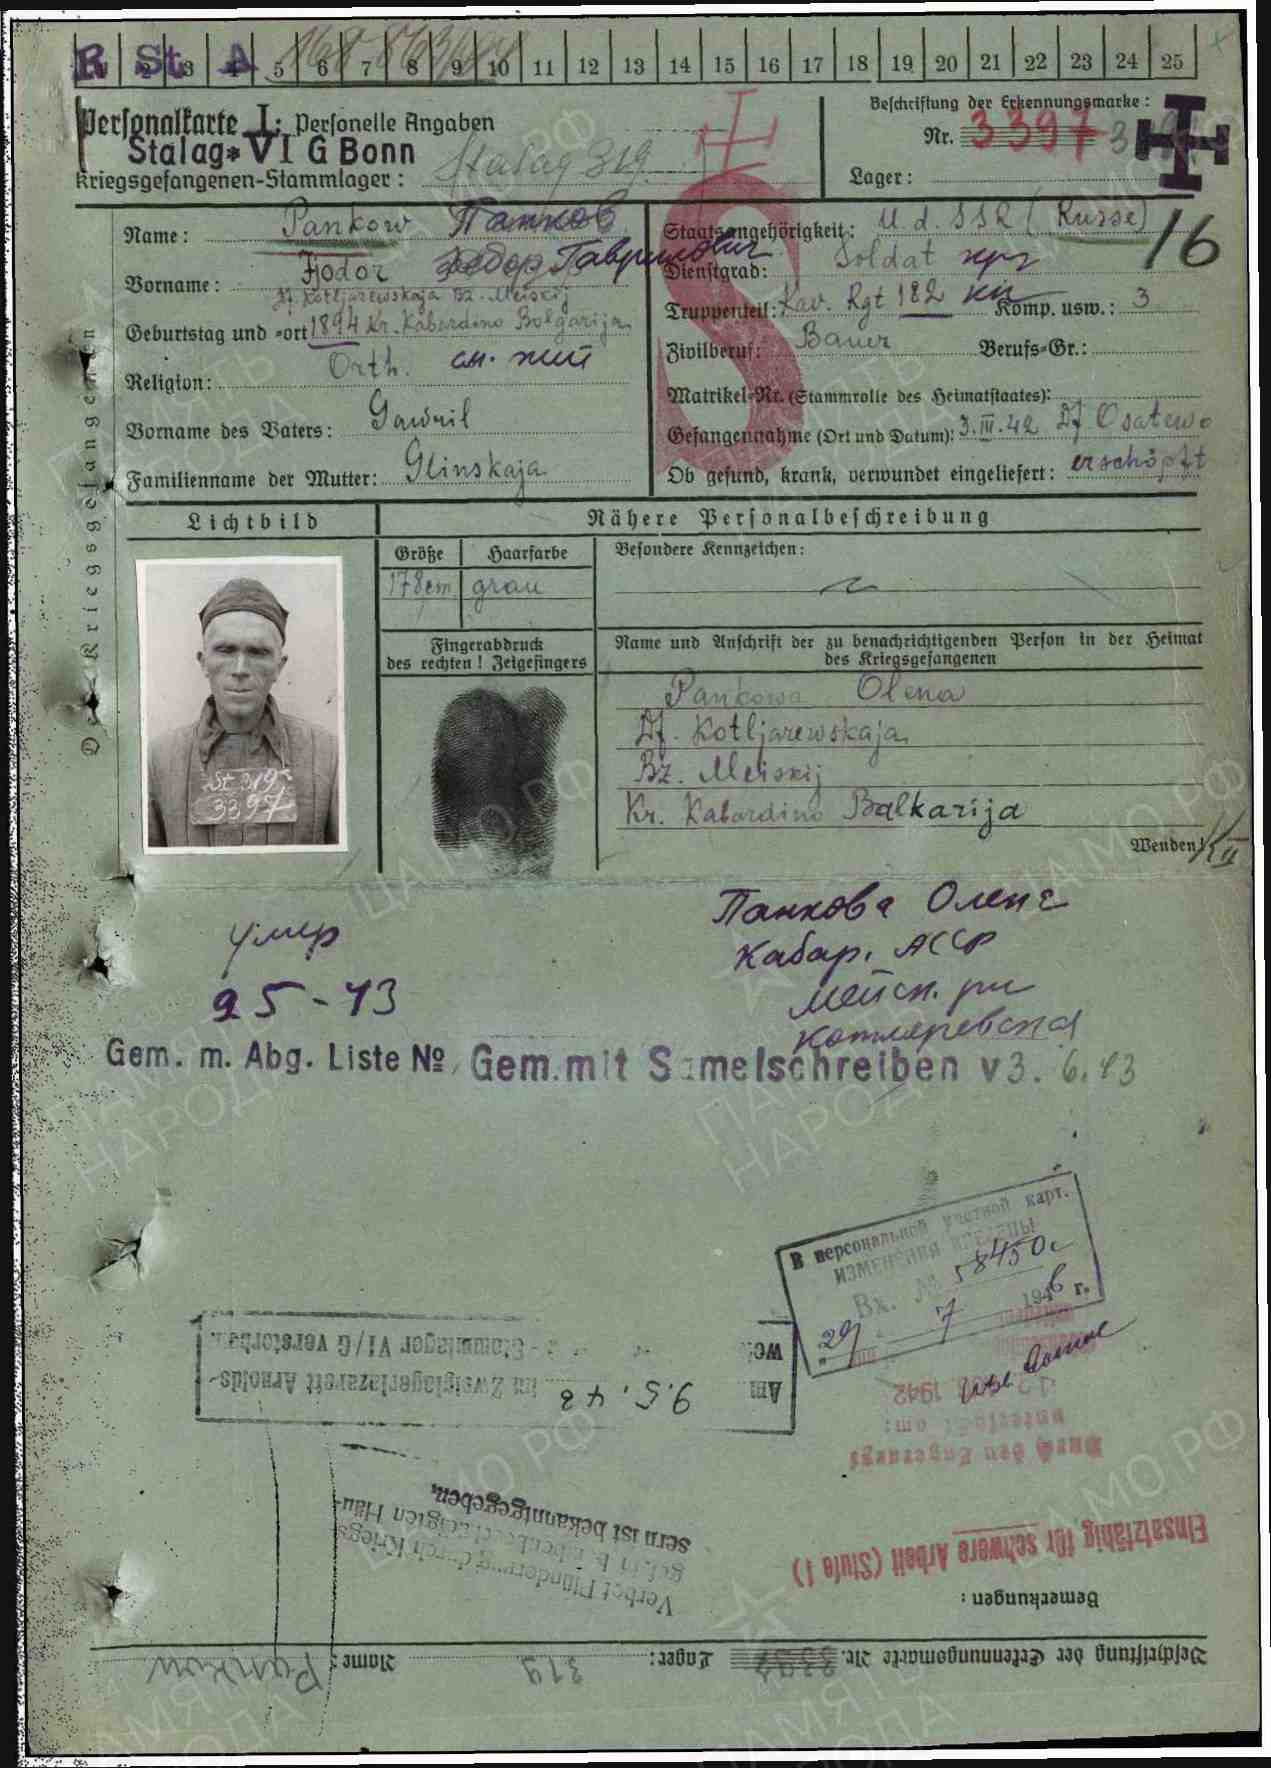 R St A 5 6 7 8 9 10 11 12 13 14 15 16 17 18 19 20 21 22 23 24 25
Personalkarte I: Personelle Angaben
Stalag VI G Bonn
Kriegsgefangenen-Stammlager: Stalag 319
Beschriftung der Erkennungsmarke:
Nr. 3397
Lager:
Name: Pankow Панков
Vorname: Fjodor Федор Гаврилович
Df. Kotljarewskaja Bz. Meiskij
Geburtstag und -ort 1894 Kr. Kabardino Bolgarija
Religion: Orth. см. ниж
Vorname des Vaters: Gawril
Familienname der Mutter: Glinskaja
Staatsangehörigkeit: U.d.SSR (Russe)
16
Dienstgrad: Soldat кр
Truppenteil: Kav. Rgt 182 кп Komp. usw.: 3
Zivilberuf: Bauer Berufs-Gr.:
Matrikel-Nr. (Stammrolle des Heimatstaates):
Gefangennahme (Ort und Datum): 3.III.42 Df Osatewo
Ob gesund, krank, verwundet eingeliefert: erschöpft
Des Kriegsgefangenen
Lichtbild
Nähere Personalbeschreibung
Größe Haarfarbe Besondere Kennzeichen:
178cm grau
Fingerabdruck
des rechten! Zeigefingers
Name und Anschrift der zu benachrichtigenden Person in der Heimat
des Kriegsgefangenen
Pankowa Olena
Df. Kotljarewskaja
Bz. Meiskij
Kr. Kabardino Balkarija
Wenden!
St 319
3397
умер
9 5 - 43
Панкова Олена
Кабар. АССР
Мейск. рн
Котляревская
Gem. m. Abg. Liste № Gem. mit Samelschreiben v 3. 6. 43
В персональной учетной карт.
ИЗМЕНЕНИЯ ВНЕСЕНЫ
Вх. № 58450с
"29" 7 1946 г.
Am 9.5.43 im Zweiglagerlazarett Arnolds-
Stammlager VI/G verstorben
1942
Verbot Plünderung durch Kriegs
gef. in beschädigten Häu-
sern ist bekanntgegeben.
Einsatzfähig für schwere Arbeit (Stufe 1)
Bemerkungen:
Beschriftung der Erkennungsmarke Nr. 3397 Lager: 319 Name: Pankow
ПАМЯТЬ НАРОДА
ЦАМО РФ